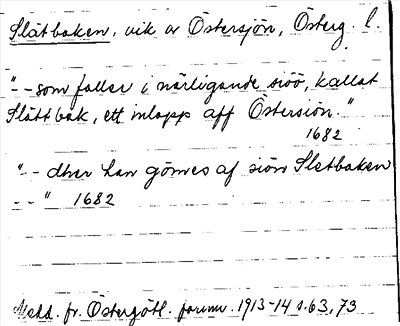 Slätbaken, vik av Östersjön, Österg. l.
"--som faller i närligande siöö, kallat
Slättbak, ett inlopp aff Östersiön."
1682
"-- dher han gömes af siön Sletbaken
--" 1682
Medd. fr. Östergötl. fornm. 1913-14 s. 63, 73